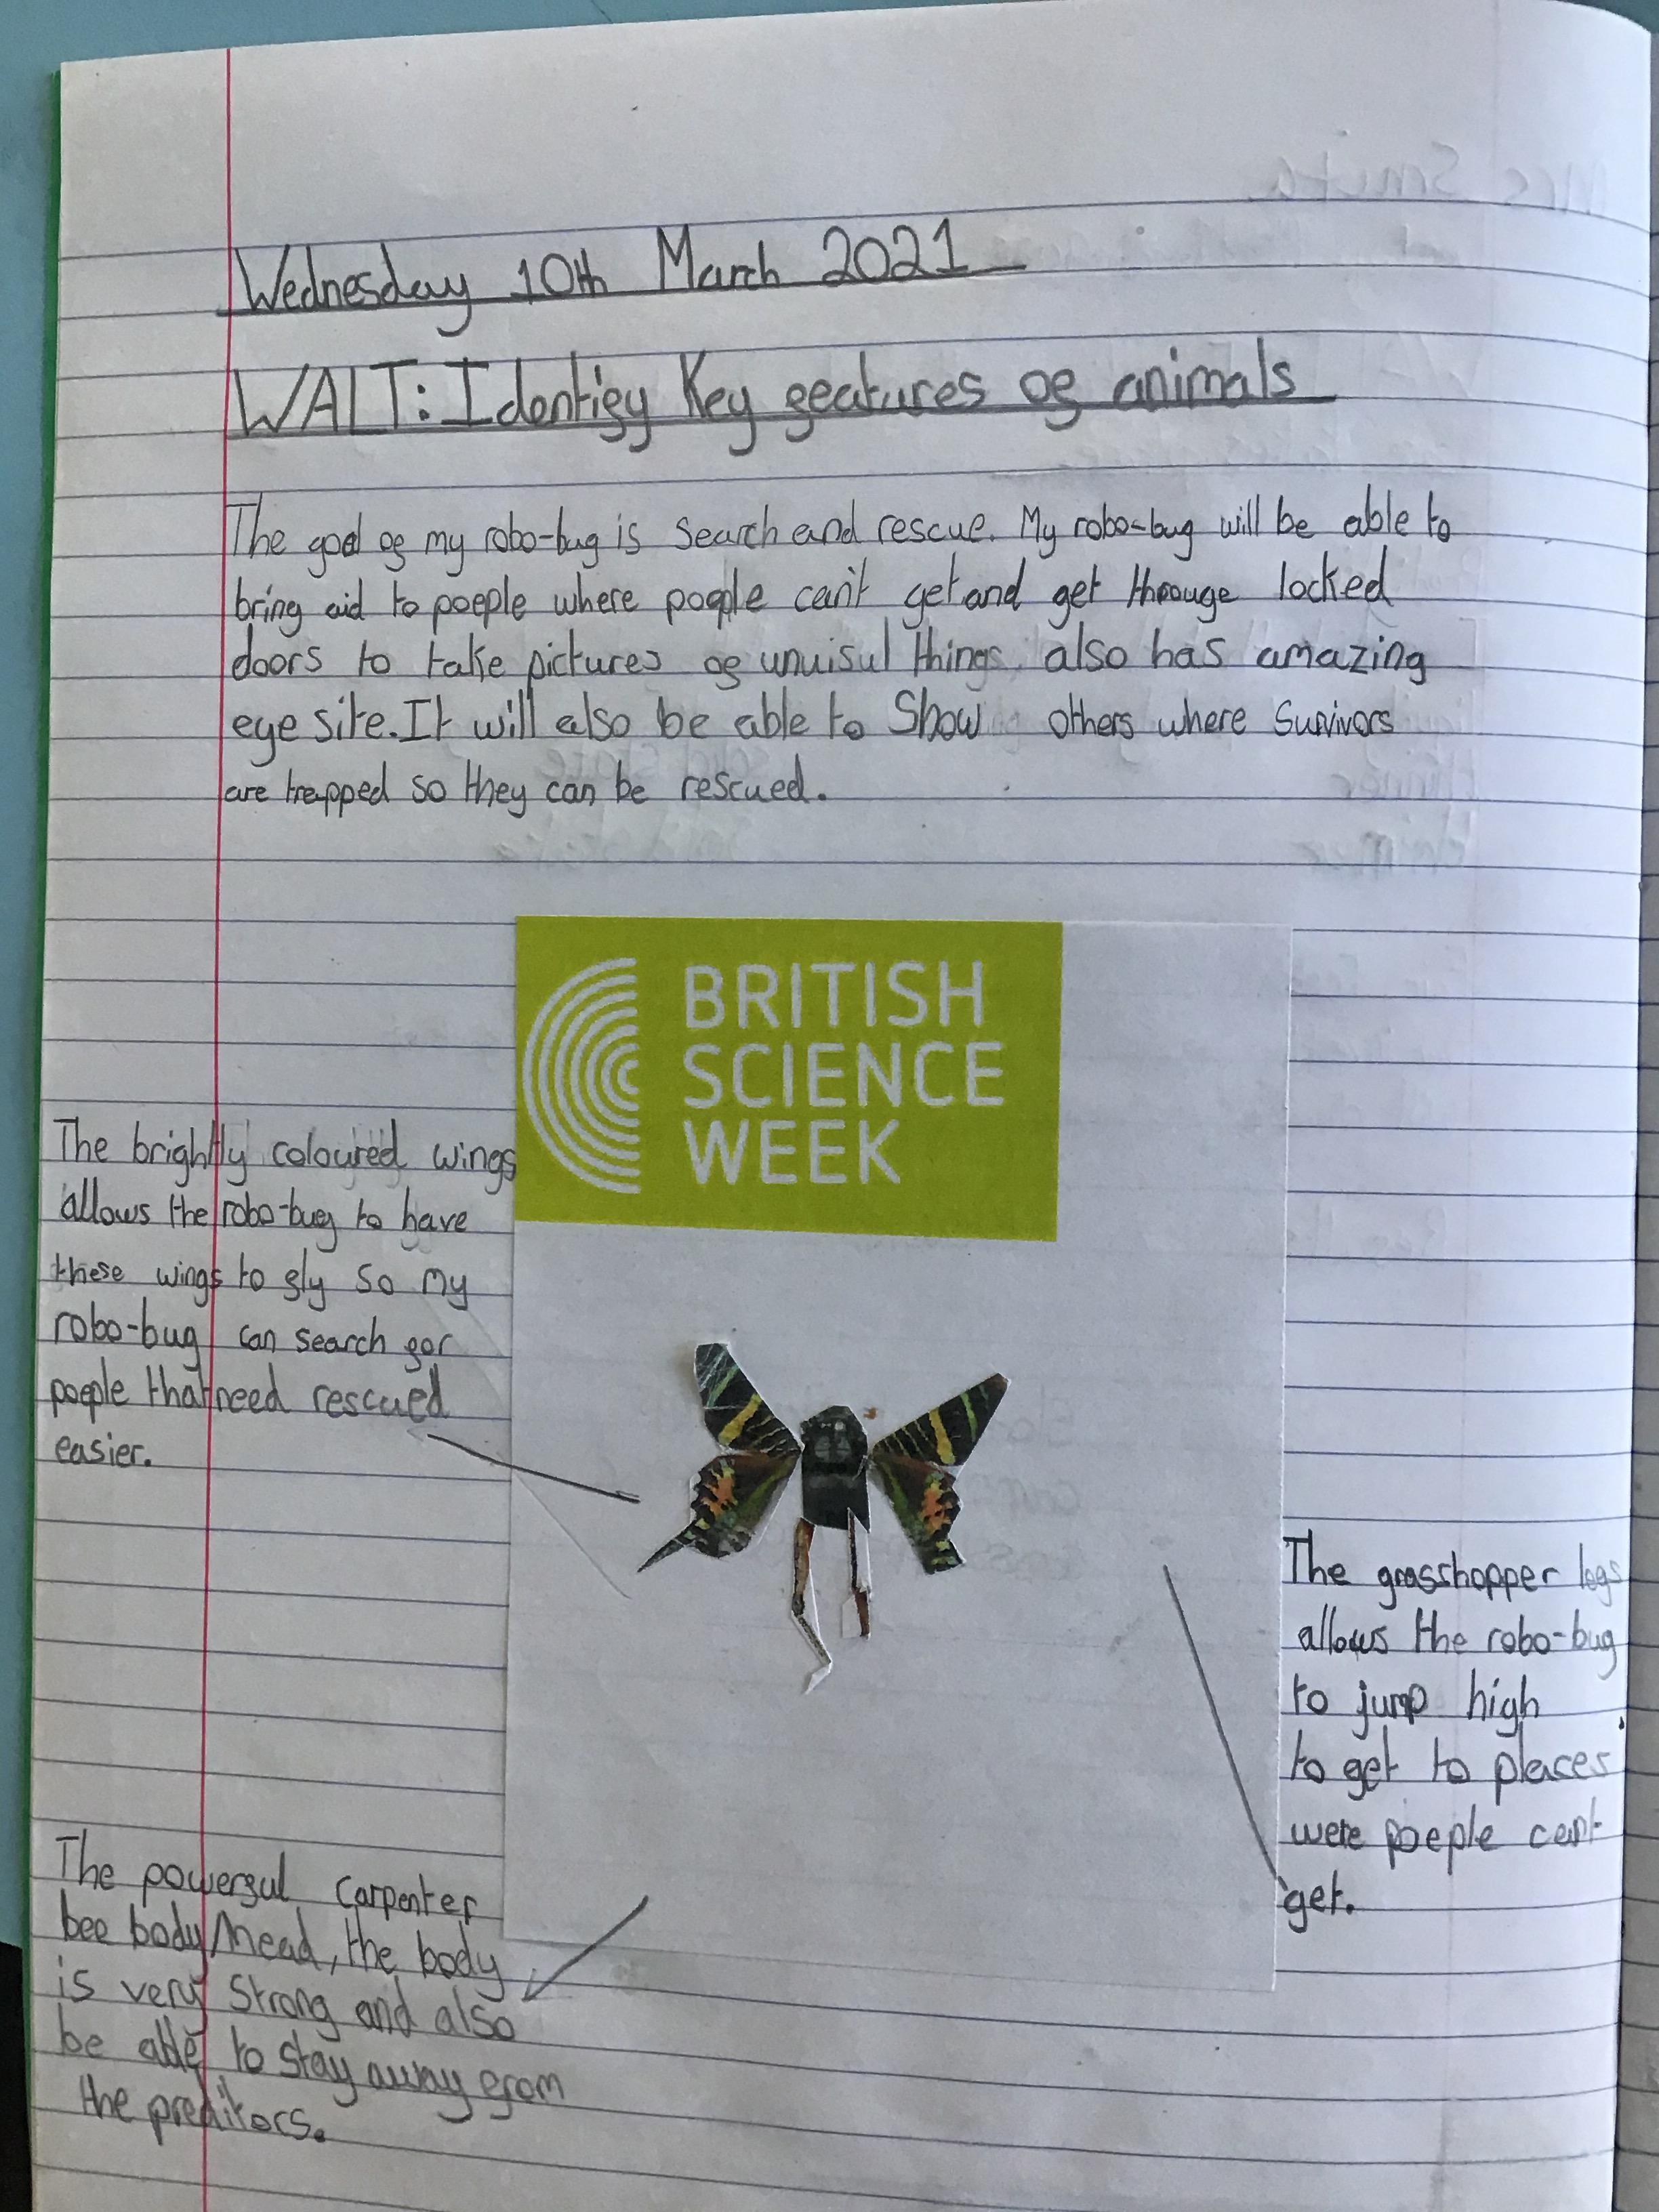 Wednesday 10th March 2021
WALT: Identify Key features of animals
The goal of my robo-bug is search and rescue. My robo-bug will be able to
bring aid to poeple where poeple can't get and get througe locked
doors to take pictures of unuisul things. also has amazing
eye site. It will also be able to Show others where Survivors
are trapped so they can be rescued.
BRITISH
SCIENCE
WEEK
The brightly coloured wings
allows the robo-bug to have
these wings to fly so my
robo-bug can search for
poeple that need rescued
easier.
The grasshopper legs
allows the robo-bug
to jump high
to get to places
were poeple can't
get.
The powerful carpenter
bee body/head, the body
is very strong and also
be able to stay away from
the preditors.